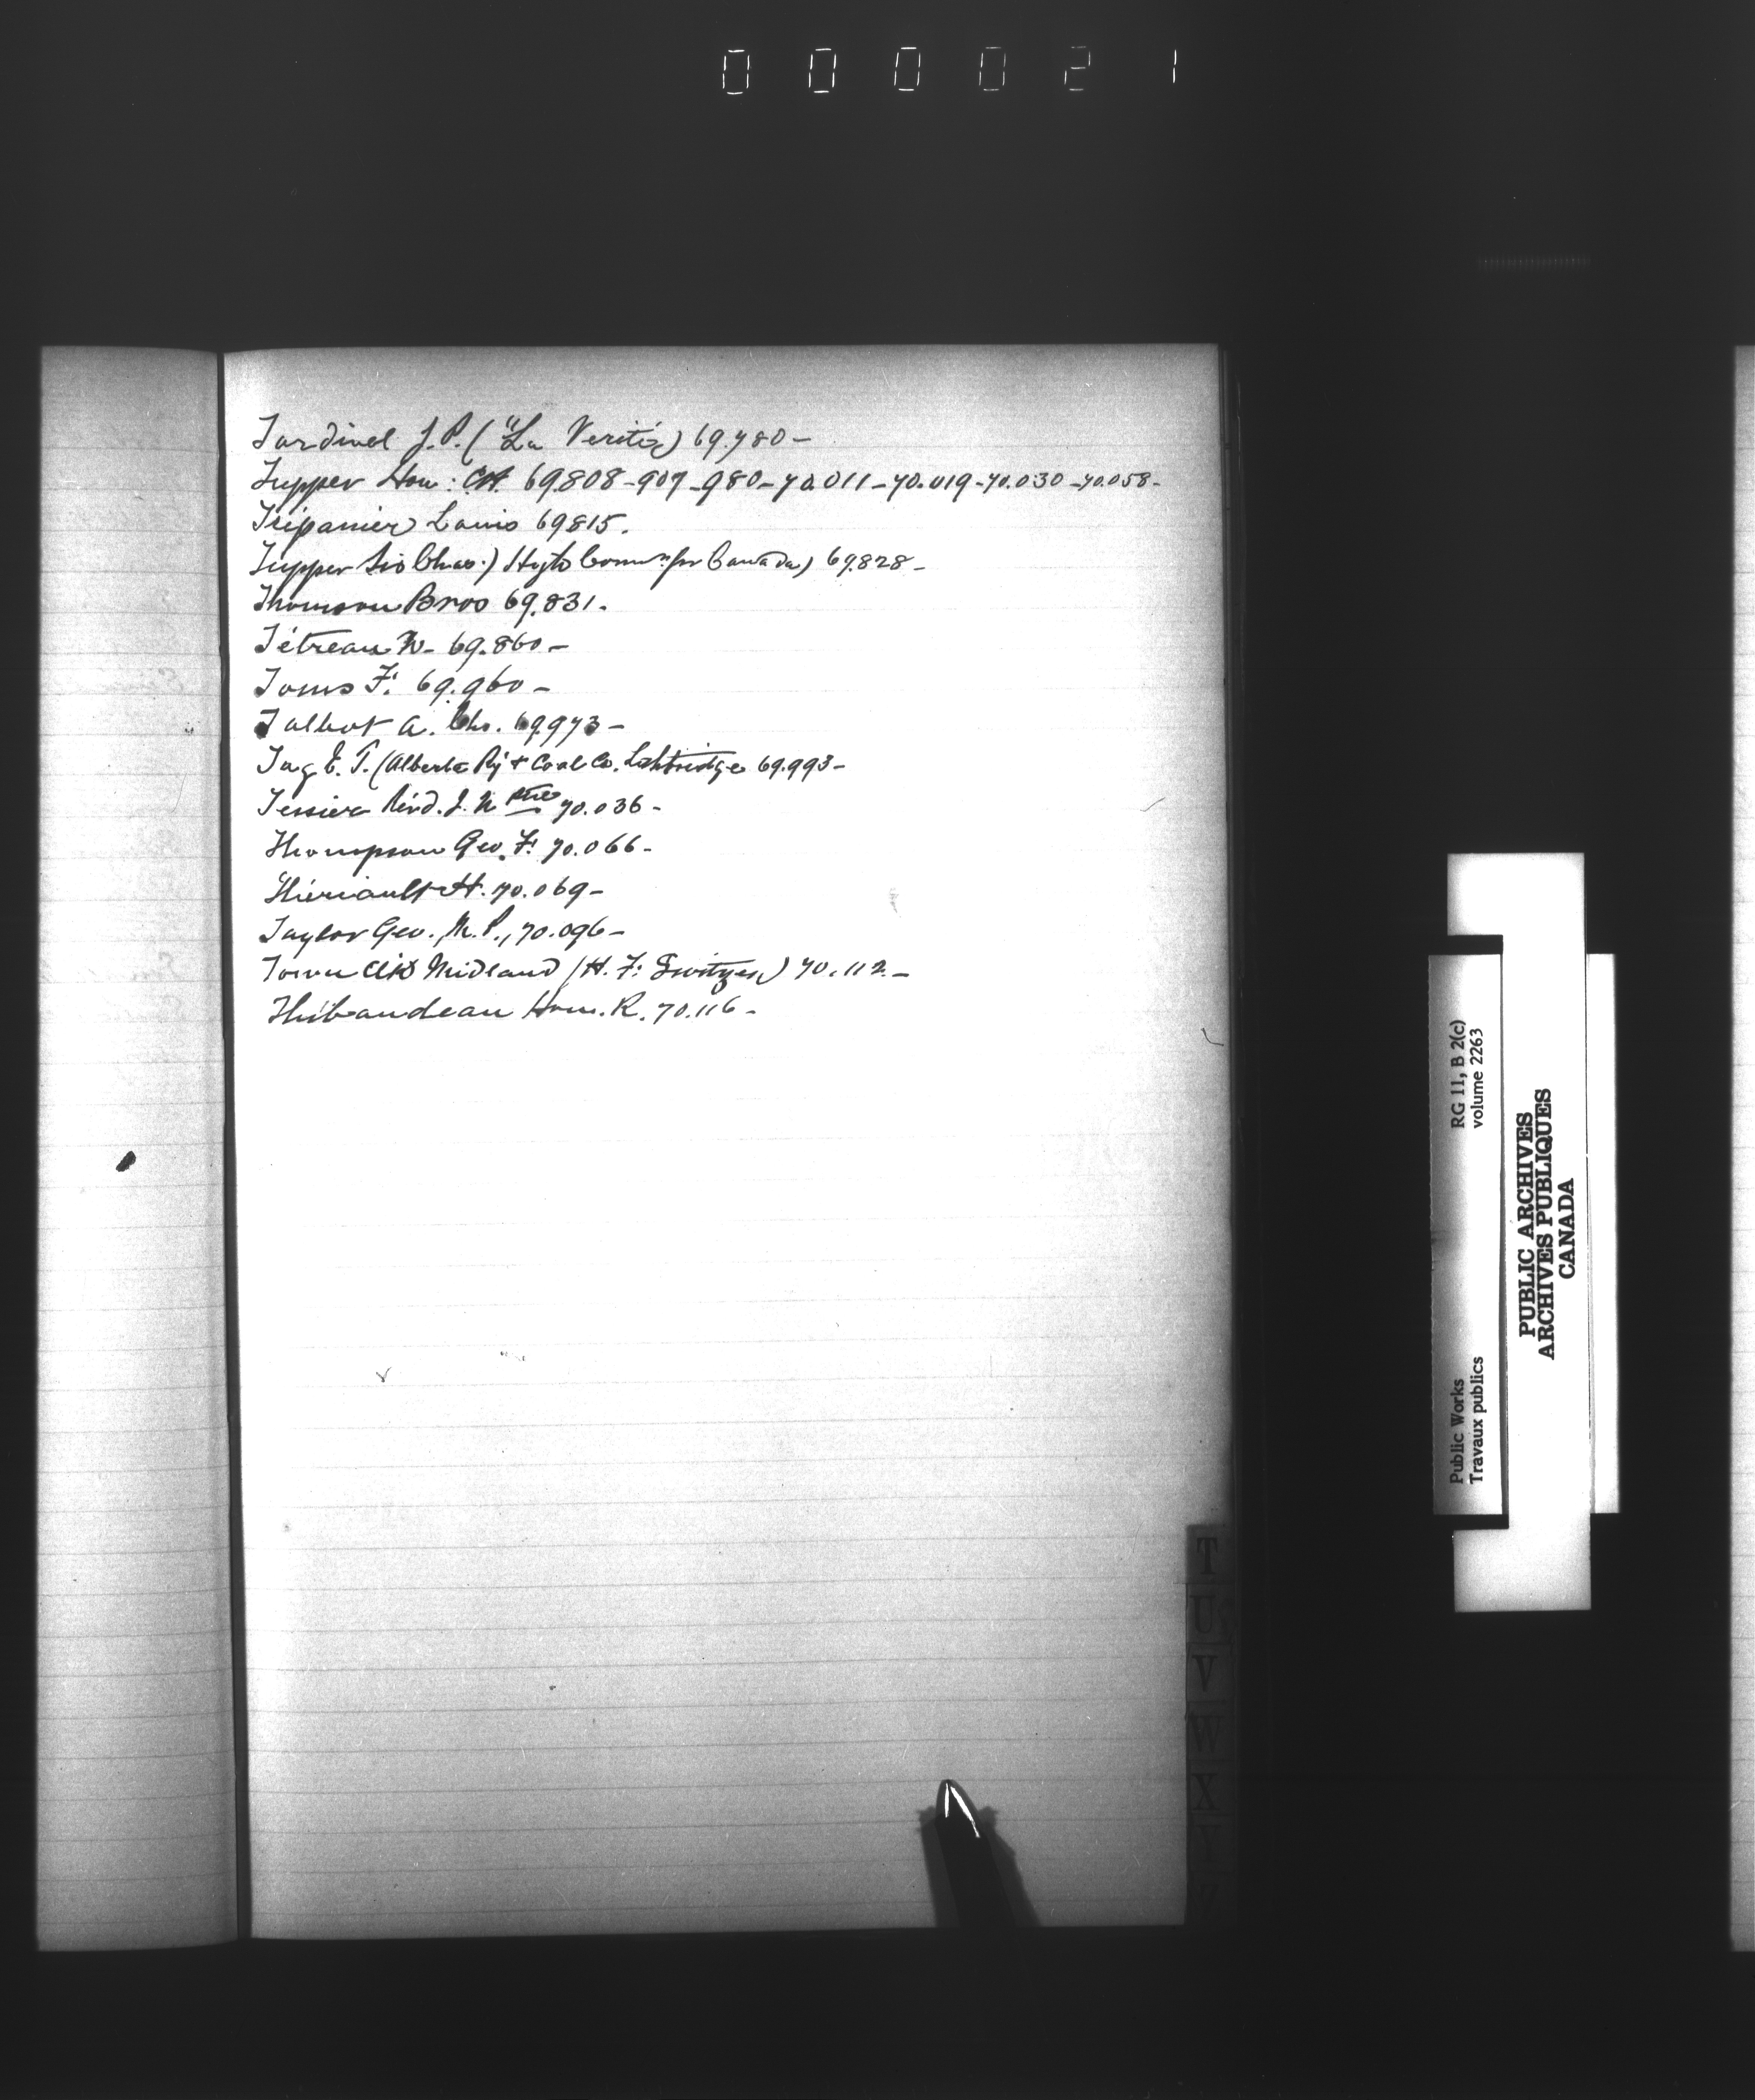 0 0 0 0 2 1
Tardivel J.P. ("La Verité) 69.780-
Tupper Hon: CH. 69808-907-980-70.011-70.019-70.030-70.058-
Trépanier Louis 69815.
Tupper Sir Chas.) Hygh Commr for Canada) 69.828-
Thomson Bros 69.831.
Tétreau N- 69.860-
Toms F: 69.960-
Talbot A. Chs. 69.973-
E. T. (Alberta Ry & Coal Co. Lethbridge 69.993-
Tessier Révd. J. N ptre 70.036-
Thompson Geo. F: 70.066-
Thériault H. 70.069-
Taylor Geo. M.P., 70.096-
Town Clk Midland (H. F: Switzer) 70.112-
Thibaudeau Hon. R. 70.116-
T
U
V
W
X
Y
Z
Public Works RG 11, B 2(c)
Travaux publics volume 2263
PUBLIC ARCHIVES
ARCHIVES PUBLIQUES
CANADA